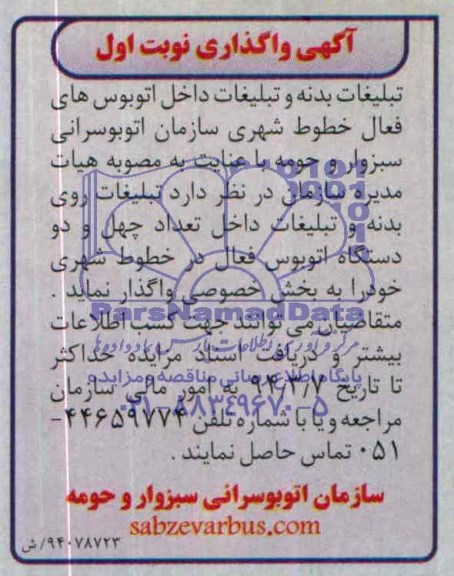 آگهی واگذاری نوبت اول
تبلیغات بدنه و تبلیغات داخل اتوبوس های
فعال خطوط شهری سازمان اتوبوسرانی
سبزوار و حومه با عنایت به مصوبه هیات
مدیره سازمان در نظر دارد تبلیغات روی
بدنه و تبلیغات داخل تعداد چهل و دو
دستگاه اتوبوس فعال در خطوط شهری
خودرا به بخش خصوصی واگذار نماید .
ParsNamadData
متقاضیان می توانند جهت کسب اطلاعات
بیشتر و دریافت اسناد مزایده حداکثر
پایگاه اطلاع رسانی مناقصه و مزایده
تا تاریخ ۹۴/۳/۷ به امور مالی سازمان
۰۲۱-۸۸۳۴۹۶۷۰-۵
مراجعه و یا با شماره تلفن ۴۴۶۵۹۷۷۴-
۰۵۱ تماس حاصل نمایند .
سازمان اتوبوسرانی سبزوار و حومه
sabzevarbus.com
۹۴۰۷۸۷۲۳/ش